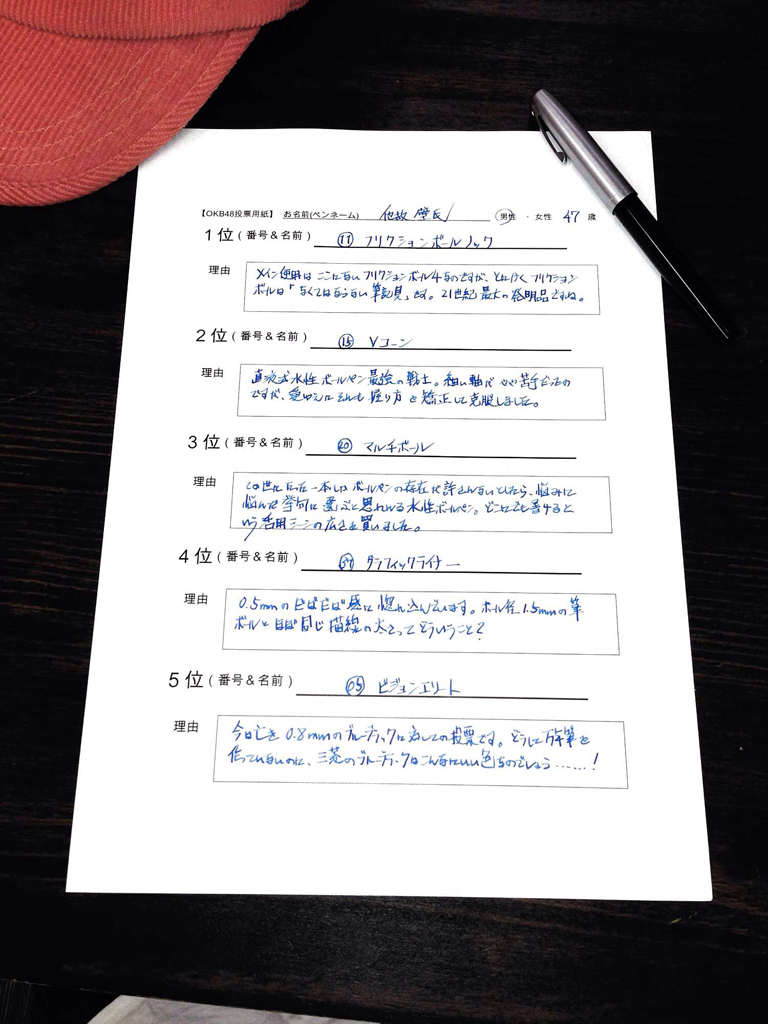 【OKB48投票用紙】 お名前(ペンネーム) 他故 壁氏 男性 ・ 女性 47 歳
1位(番号&名前) ⑪ フリクションボールノック
理由 メイン使用はここにないフリクションボール4なのですが、とにかくフリクション
ボールは「なくてはならない筆記具」です。21世紀最大の発明品ですね。
2位(番号&名前) ⑮ Vコーン
理由 直液式水性ボールペン最強の戦士。細い軸が 苦手だったの
ですが、愛ゆえにそれも握り方を矯正して克服しました。
3位(番号&名前) ⑳ マルチボール
理由 この世にたった一本しかボールペンの存在が許されないとしたら、悩みに
悩んだ挙句に選ぶと思われる水性ボールペン。どこにでも書けると
いう活用シーンの広さを買いました。
4位(番号&名前) ㊲ トラフィックライナー
理由 0.5mmのどばどば感に惚れ込んでいます。ボール径1.5mmの筆
ボールとほぼ同じ描線の太さってどういうこと?
5位(番号&名前) 05 ビジョンエリート
理由 今は亡き0.8mmのブルーブラックに対しての投票です。どうして万年筆を
作っていないのに、三菱のブルーブラックはこんなにいい色なのでしょう……!